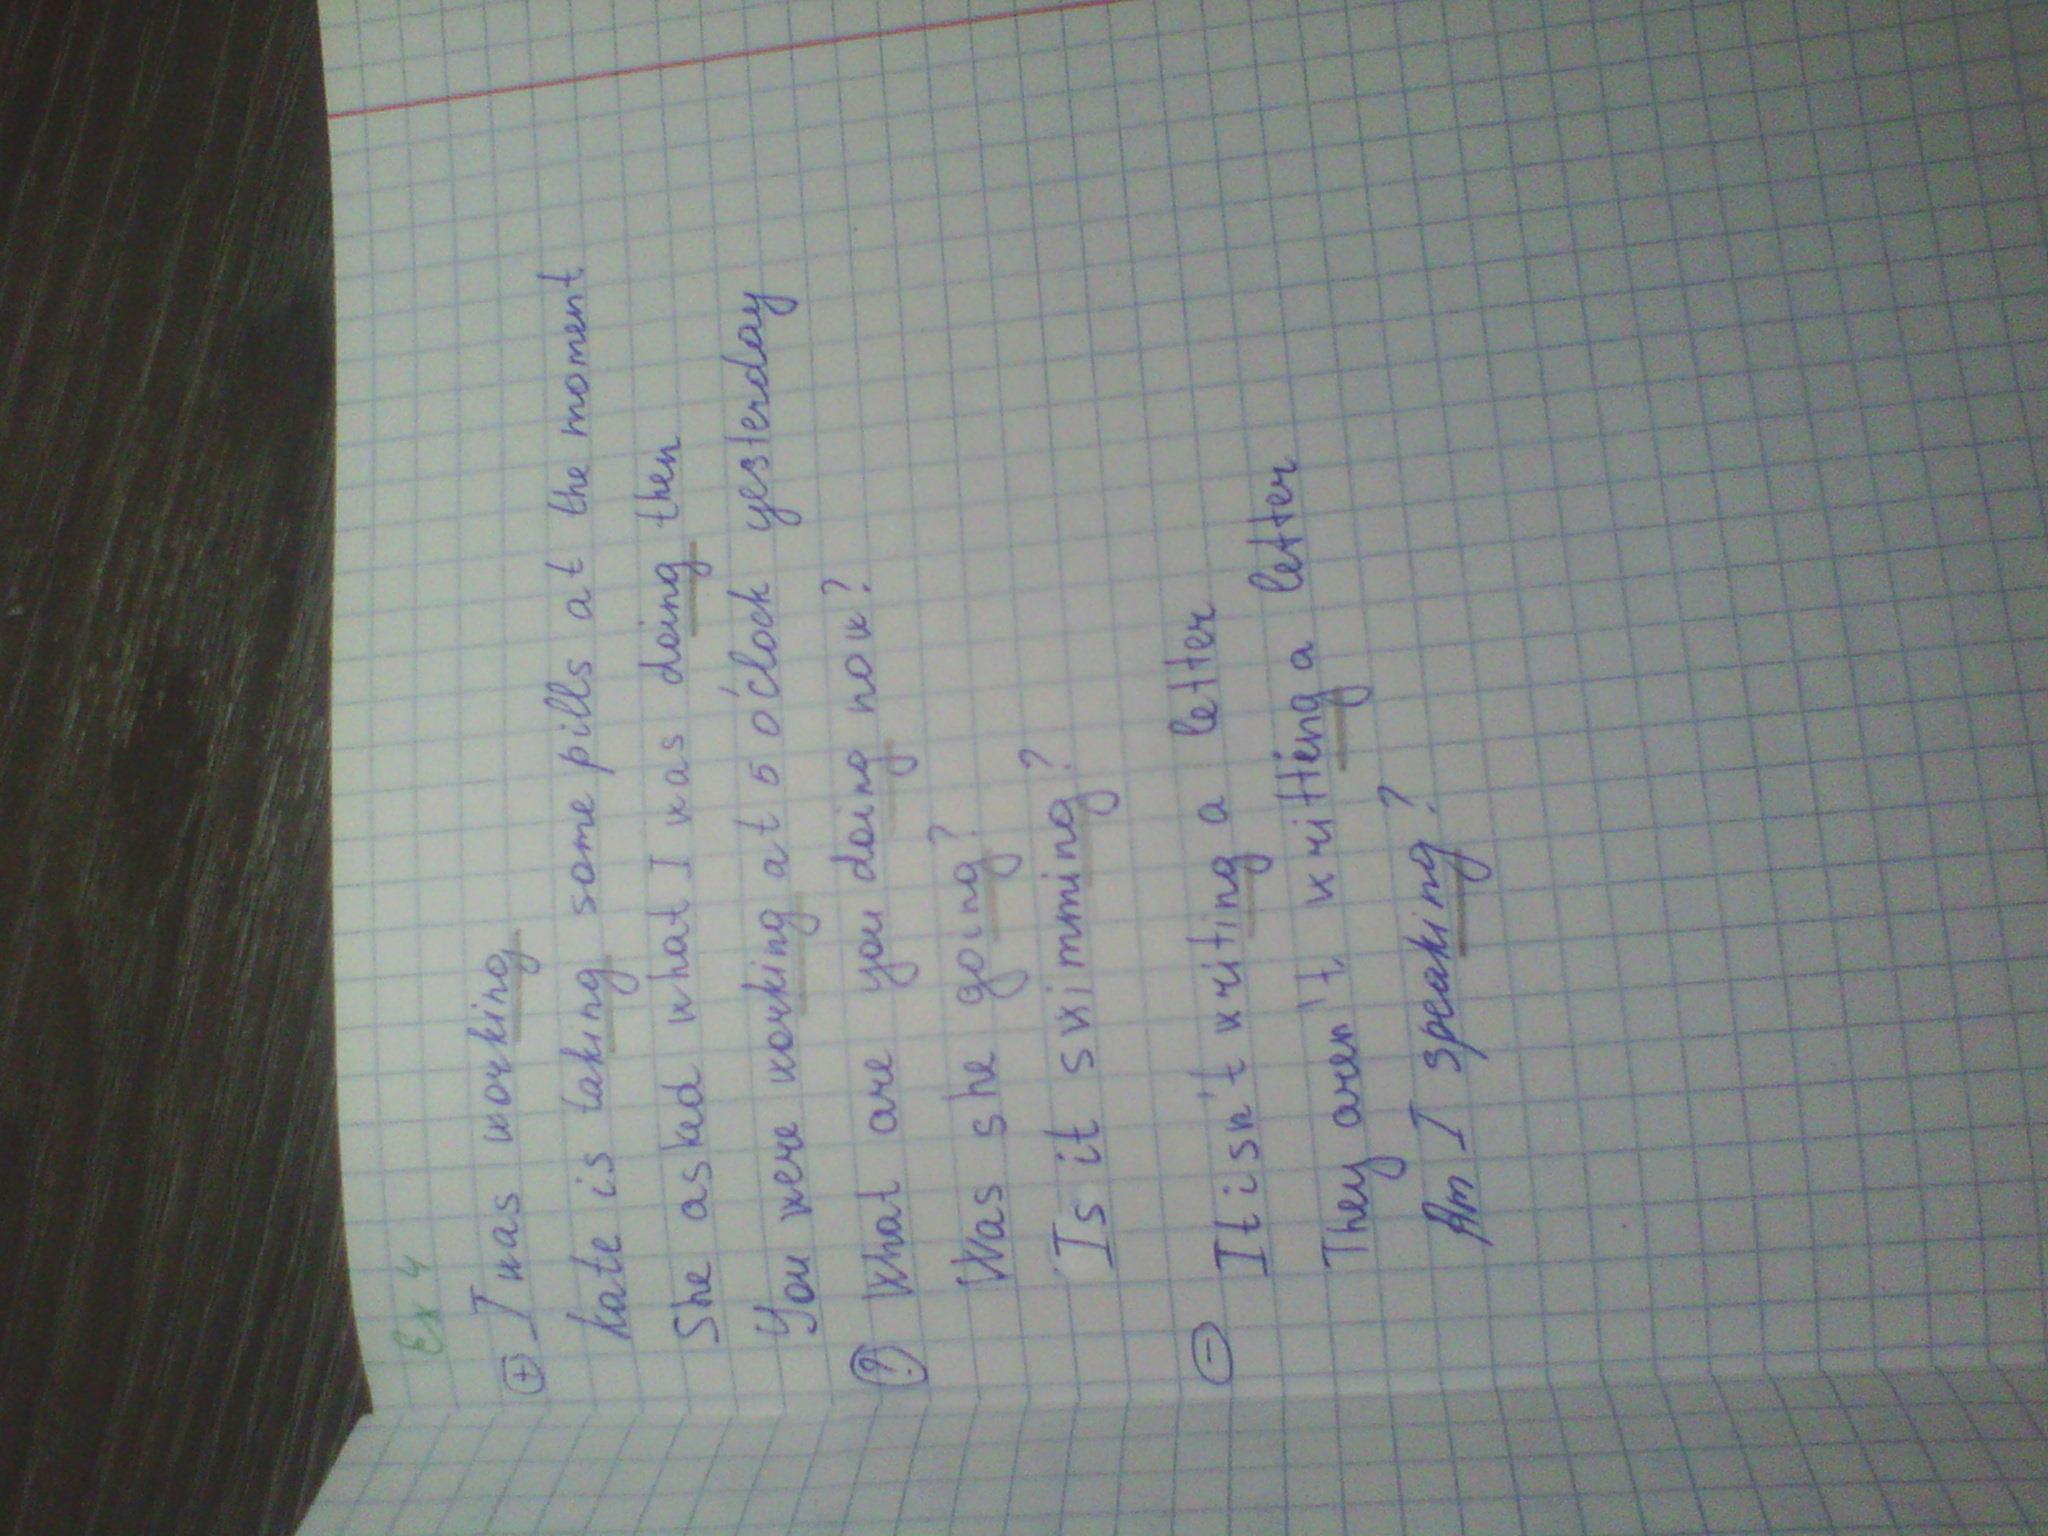 Ex 4
(+) I was working
Kate is taking some pills at the moment
She asked what I was doing then
You were working at 5 o'clock yesterday
(?) What are you doing now?
Was she going?
Is it swimming?
(-) It isn't writing a letter
They aren't writting a letter
Am I speaking?